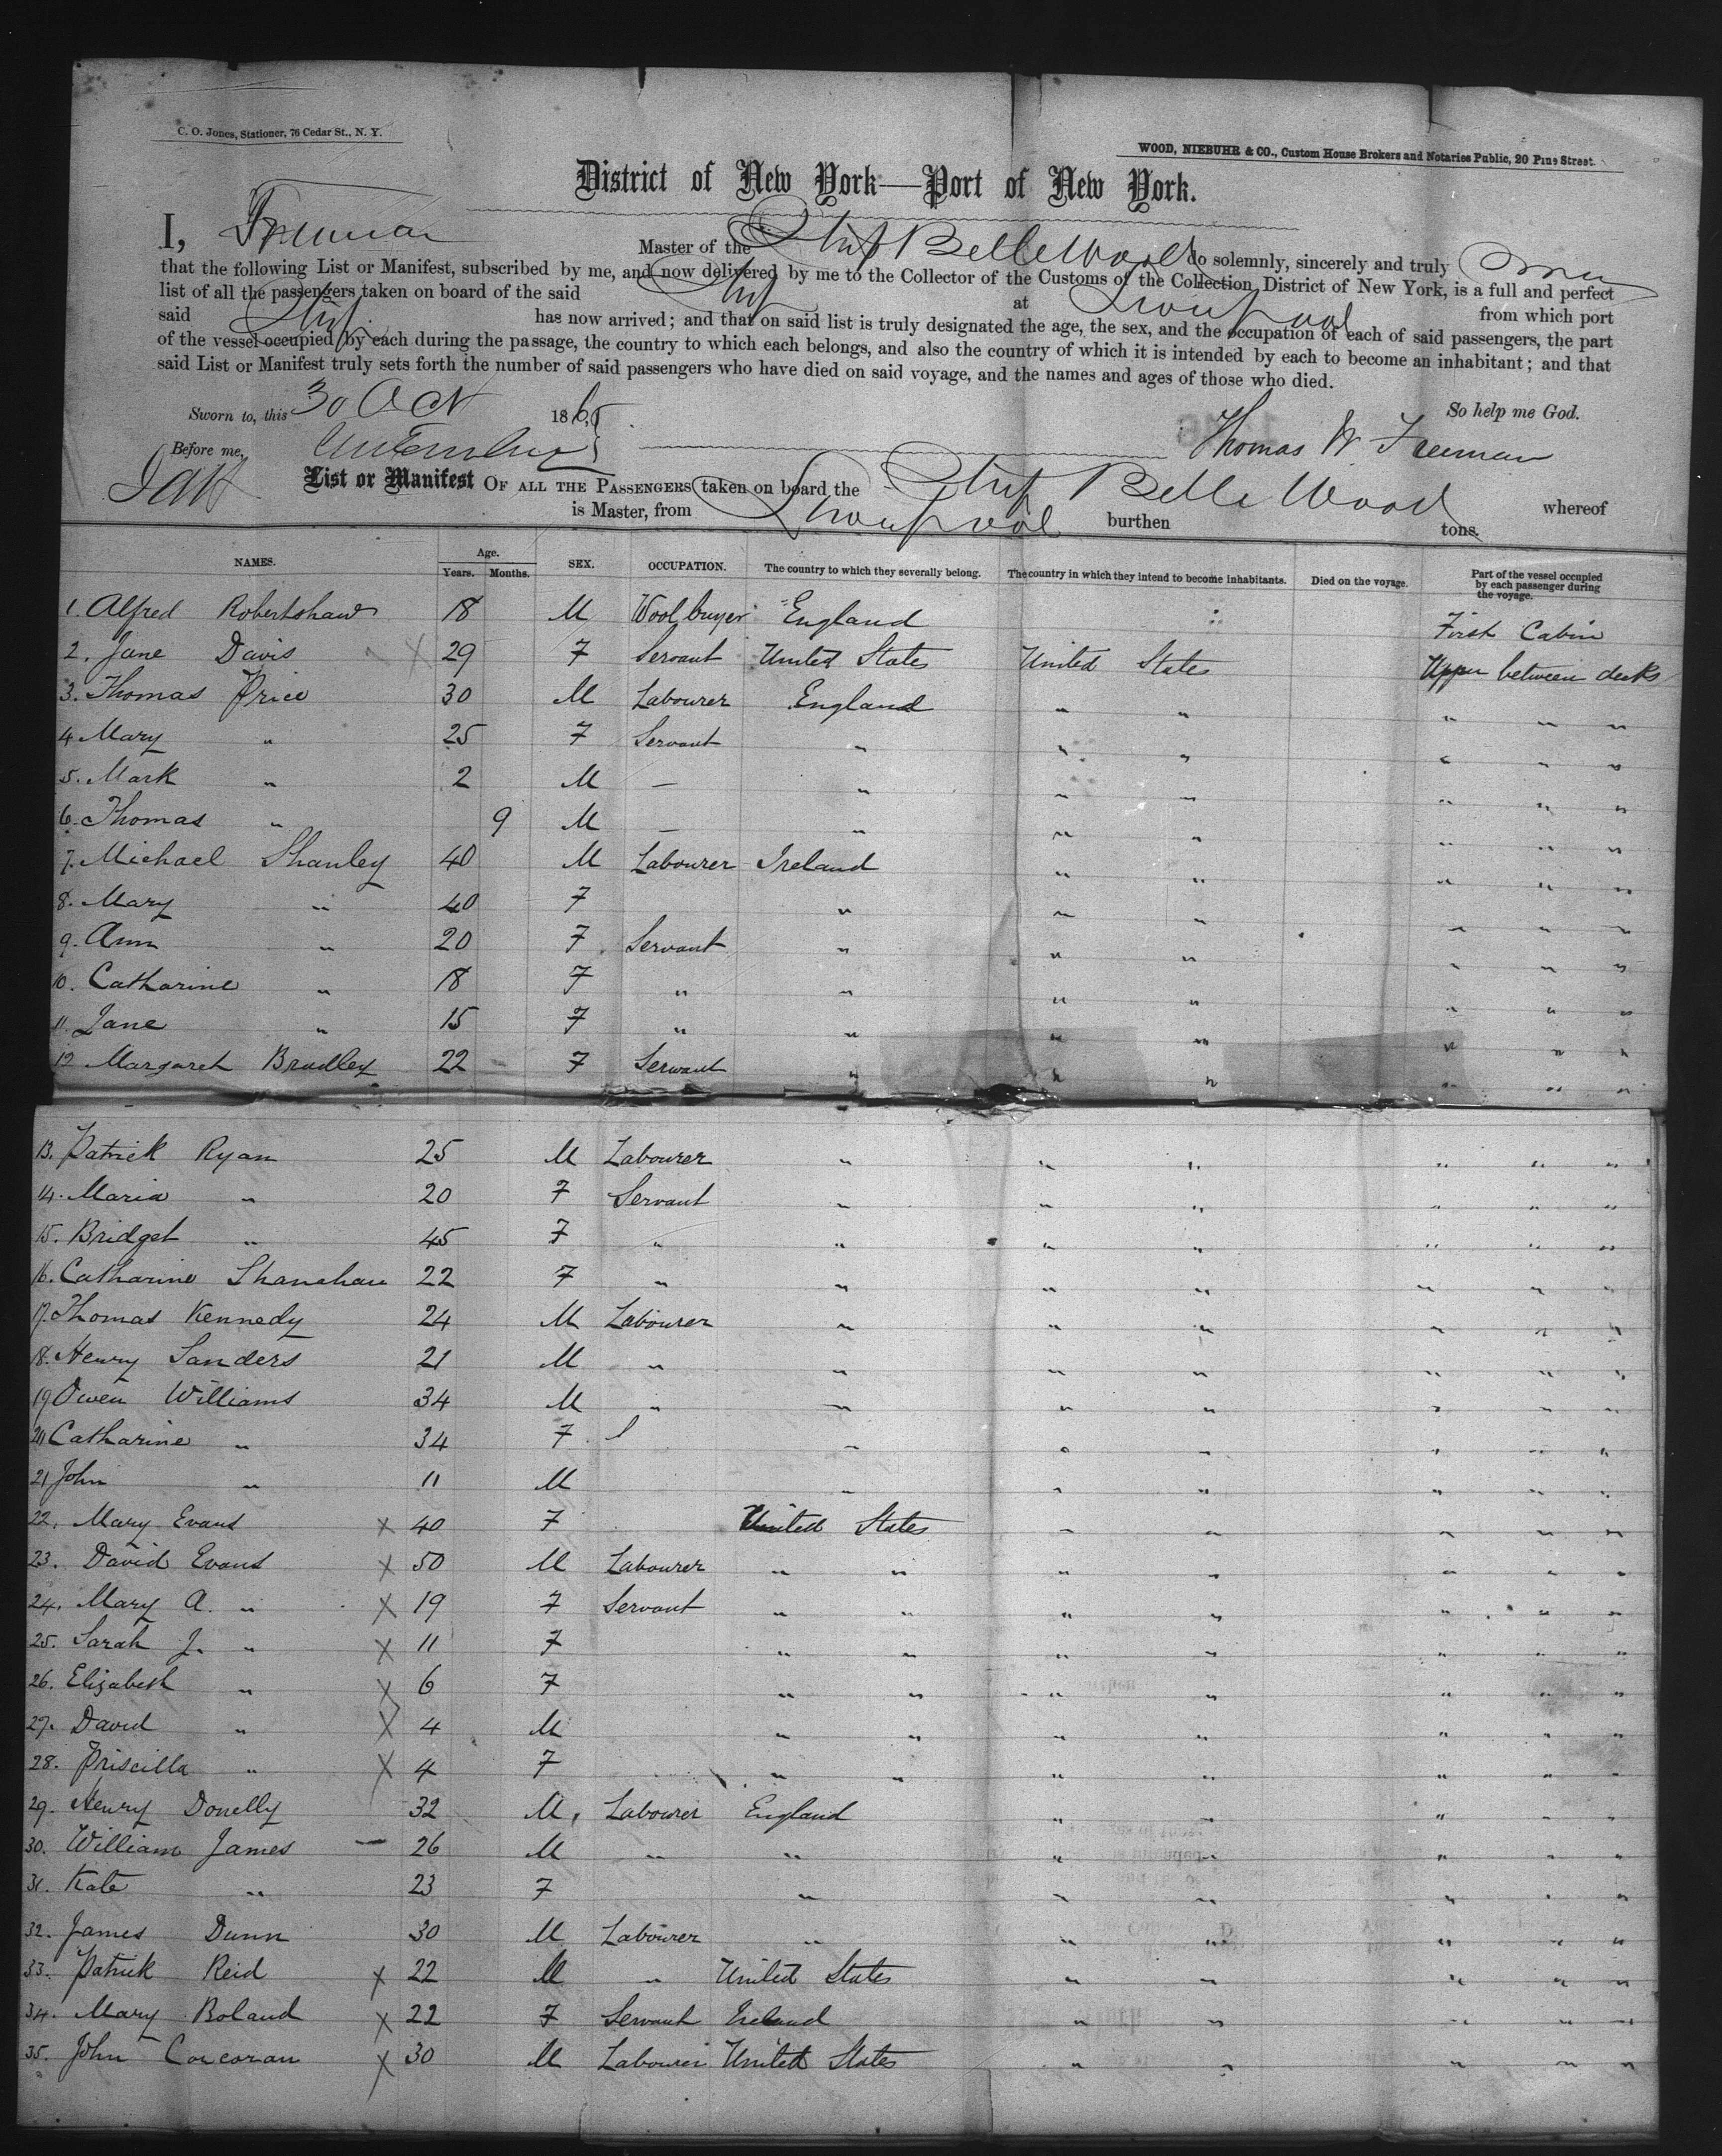 C. O. Jones, Stationer, 76 Cedar St., N. Y.
WOOD, NIEBUHR & CO., Custom House Brokers and Notaries Public, 20 Pine Street.
District of New York—Port of New York.
I, Freeman Master of the Ship Belle Wood do solemnly, sincerely and truly
that the following List or Manifest, subscribed by me, and now delivered by me to the Collector of the Customs of the Collection District of New York, is a full and perfect
list of all the passengers taken on board of the said Ship at Liverpool from which port
said Ship has now arrived; and that on said list is truly designated the age, the sex, and the occupation of each of said passengers, the part
of the vessel occupied by each during the passage, the country to which each belongs, and also the country of which it is intended by each to become an inhabitant; and that
said List or Manifest truly sets forth the number of said passengers who have died on said voyage, and the names and ages of those who died.
Sworn to, this 30 Oct 1865 So help me God.
Before me, Thomas W Freeman
List or Manifest OF ALL THE PASSENGERS taken on board the Ship Belle Wood whereof
is Master, from Liverpool burthen tons.
NAMES. Age. Years. Months. SEX. OCCUPATION. The country to which they severally belong. The country in which they intend to become inhabitants. Died on the voyage. Part of the vessel occupied by each passenger during the voyage.
1. Alfred Robertshaw 18 M Wool buyer England First Cabin
2. Jane Davis X 29 F Servant United States United States Upper between decks
3. Thomas Price 30 M Labourer England " " " " "
4 Mary " 25 F Servant " " " " " "
5. Mark " 2 M — " " " " " "
6. Thomas " 9 M — " " " " " "
7. Michael Shanley 40 M Labourer Ireland " " " " "
8. Mary " 40 F " " " " " "
9. Ann " 20 F Servant " " " " " "
10. Catharine " 18 F " " " " " " "
11. Jane " 15 F " " " " " " "
12 Margaret Bradley 22 F Servant " " " " " "
13. Patrick Ryan 25 M Labourer " " " " " "
14. Maria " 20 F Servant " " " " " "
15. Bridget " 45 F " " " " " " "
16. Catharine Shanahan 22 F " " " " " " "
17. Thomas Kennedy 24 M Labourer " " " " " "
18. Henry Sanders 21 M " " " " " " "
19 Owen Williams 34 M " " " " " " "
20 Catharine " 34 F " " " " " "
21 John " 11 M " " " " " "
22. Mary Evans X 40 F United States " " " " "
23. David Evans X 50 M Labourer " " " " " " "
24. Mary A. " X 19 F Servant " " " " " " "
25. Sarah J. " X 11 F " " " " " " "
26. Elizabeth " X 6 F " " " " " " "
27. David " X 4 M " " " " " " "
28. Priscilla " X 4 F " " " " " " "
29. Henry Donelly 32 M. Labourer England " " " " "
30. William James — 26 M " " " " " " "
31. Kate " 23 F " " " " " "
32. James Dunn 30 M Labourer " " " " " "
33. Patrick Reid X 22 M " United States " " " " "
34. Mary Boland X 22 F Servant Ireland " " " " "
35. John Corcoran X 30 M Labourer United States " " " " "